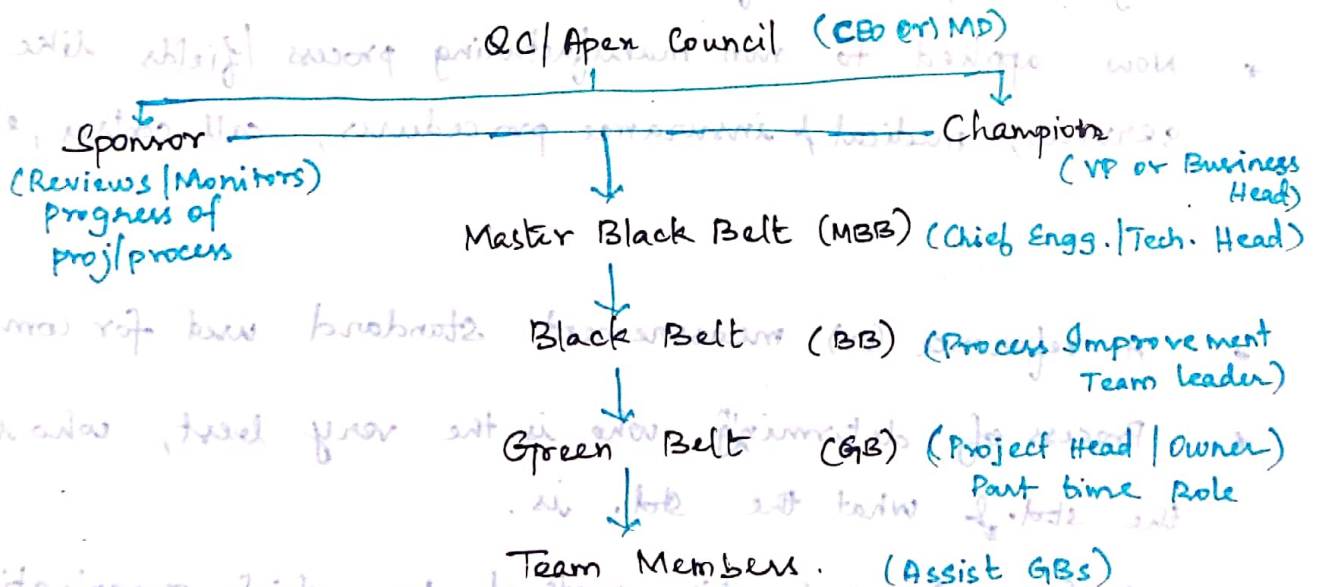 QC/ Apex Council (CEO (or) MD)
Sponsor
Champions
(Reviews/Monitors)
progress of
proj/process
(VP or Business
Head)
Master Black Belt (MBB) (Chief Engg./Tech. Head)
Black Belt (BB) (Process Improvement
Team leader)
Green Belt (GB) (Project Head / Owner)
Part time Role
Team Members. (Assist GBs)